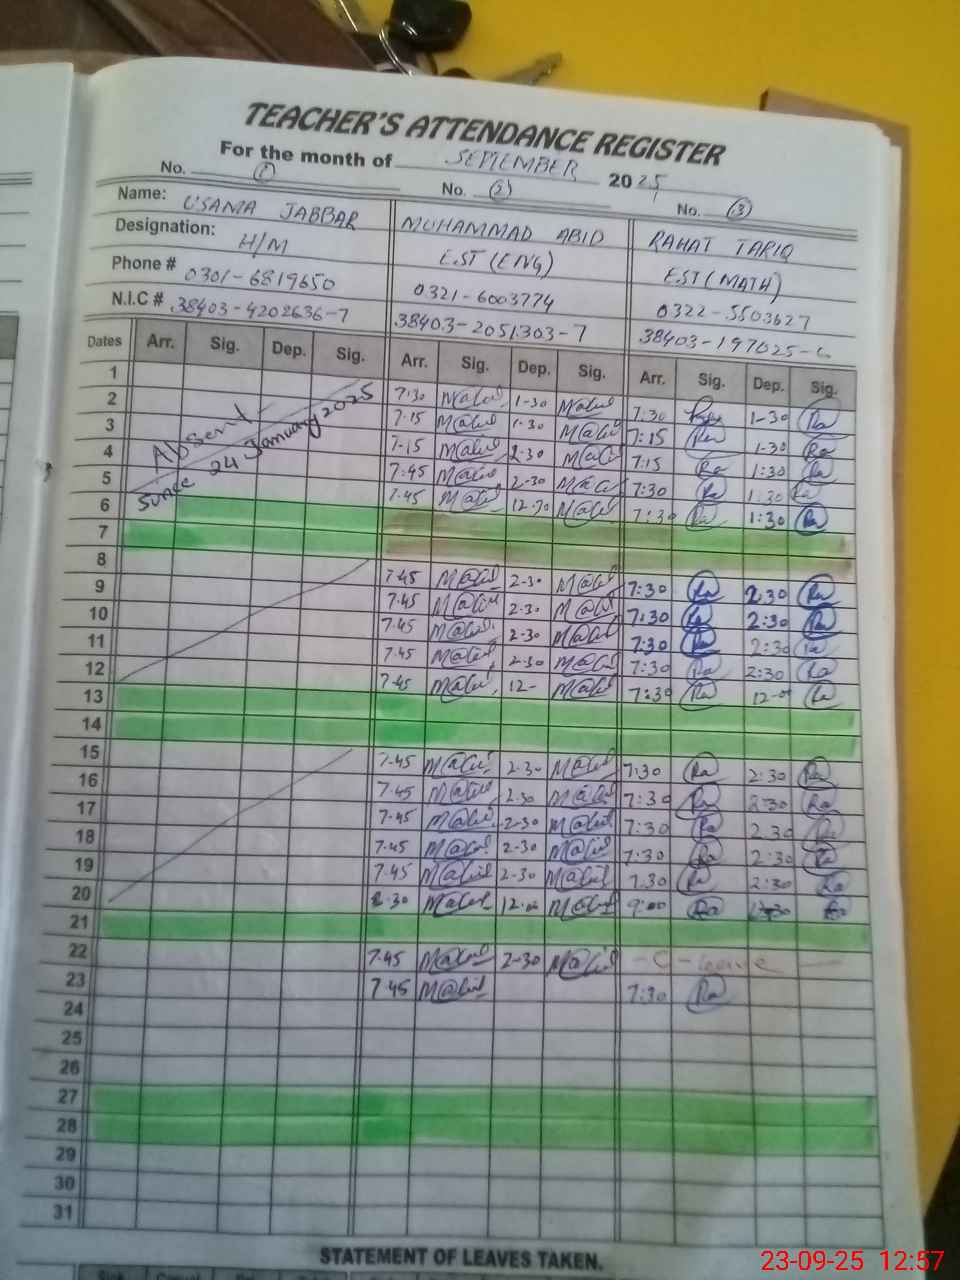 TEACHER'S ATTENDANCE REGISTER
For the month of SEPTEMBER 2025
No. 1 No. 2 No. 3
Name: USAMA JABBAR MUHAMMAD ABID RAHAT TARIQ
Designation: H/M EST (ENG) EST (MATH)
Phone # 0301-6819650 0321-6003774 0322-5503627
N.I.C # 38403-4202636-7 38403-2051303-7 38403-197025-6
Dates Arr. Sig. Dep. Sig. Arr. Sig. Dep. Sig. Arr. Sig. Dep. Sig.
1 7:30 M@bid 1-30 M@bid 7:30 Ra 1-30 Ra
2 7-15 M@bid 1-30 M@bid 7:15 Ra 1-30 Ra
3 Absent 7-15 M@bid 2-30 M@bid 7:15 Ra 1:30 Ra
4 Since 24 January 2025 7-45 M@bid 2-30 M@bid 7:30 Ra 1:30 Ra
5 7-45 M@bid 12-30 M@bid 7:30 Ra 1:30 Ra
6
7
8 7-45 M@bid 2-30 M@bid 7:30 Ra 2:30 Ra
9 7-45 M@bid 2-30 M@bid 7:30 Ra 2:30 Ra
10 7-45 M@bid 2-30 M@bid 7:30 Ra 2:30 Ra
11 7-45 M@bid 2-30 M@bid 7:30 Ra 2:30 Ra
12 7-45 M@bid 12- M@bid 7:30 Ra 12-00 Ra
13
14
15 7-45 M@bid 2-30 M@bid 7:30 Ra 2:30 Ra
16 7-45 M@bid 2-30 M@bid 7:30 Ra 2:30 Ra
17 7-45 M@bid 2-30 M@bid 7:30 Ra 2:30 Ra
18 7-45 M@bid 2-30 M@bid 7:30 Ra 2:30 Ra
19 7-45 M@bid 2-30 M@bid 7:30 Ra 2:30 Ra
20 8-30 M@bid 12-00 M@bid 9:00 Ra Ra
21
22 7-45 M@bid 2-30 M@bid - C - leave -
23 7-45 M@bid 7:30 Ra
24
25
26
27
28
29
30
31
STATEMENT OF LEAVES TAKEN.
23-09-25 12:57